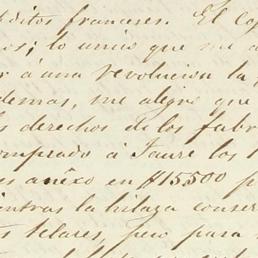 ditos franceses. El Cop
os; lo unico que me a
r á una revolucion la
demas, me alegro que
s derechos de los fabr
omprado á Faure los
es anêxo en $15500 p
ientras la hilaza conser
s telares, pero para